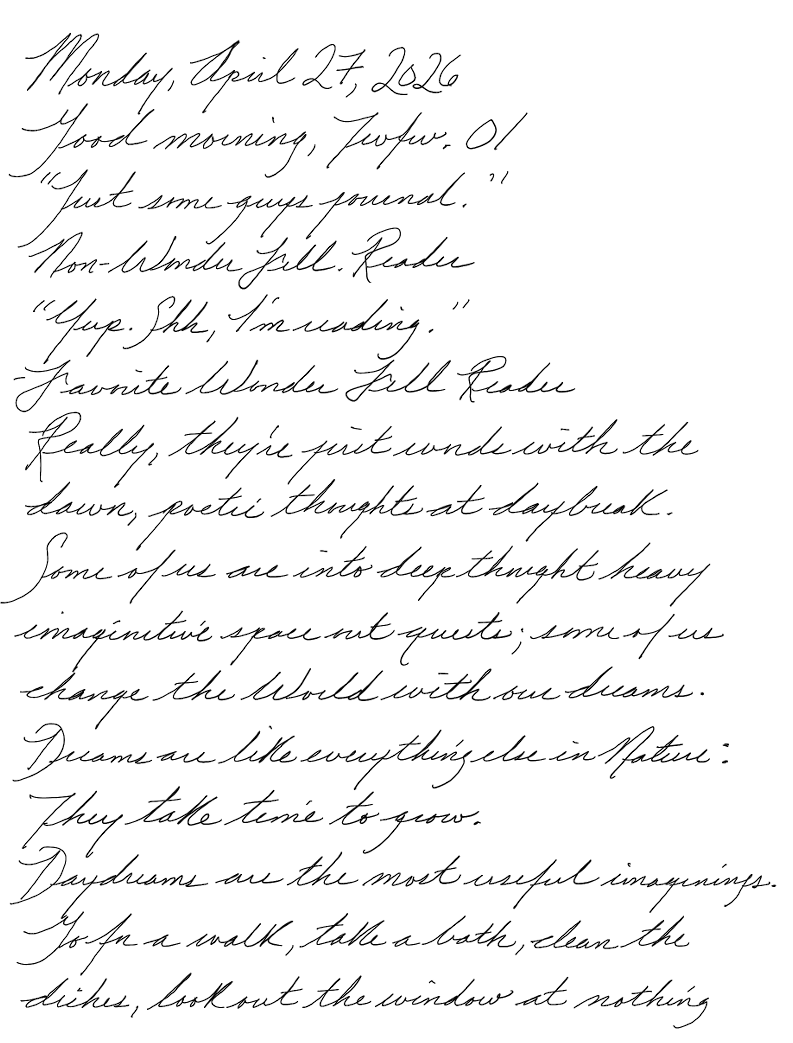 Monday, April 27, 2026
Good morning, Fwfw. 01
"Just some guys journal."
Non-Wonder Full. Reader
"Yup. Shh, I'm reading."
-Favorite Wonder Full Reader
Really, they're just words with the
dawn, poetic thoughts at daybreak.
Some of us are into deep thought heavy
imaginitive space out quests; some of us
change the World with our dreams.
Dreams are like everything else in Nature:
They take time to grow.
Daydreams are the most useful imaginings.
Go for a walk, take a bath, clean the
dishes, look out the window at nothing